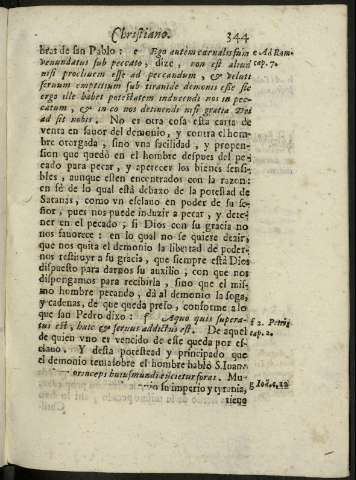 Christiano. 344
bras de san Pablo: e Ego autem carnalis sum
venundatus sub peccato, dize, non est aliud
nisi procliuem esse ad peccandum, & veluti
seruum emptitium sub tiranide demonis esse sic
ergo ille habet potestatem inducendi nos in pec-
catum, & in eo nos detinendi nisi gratia Dei
ad sit nobis. No es otra cosa esta carta de
venta en fauor del demonio, y contra el hom-
bre otorgada, sino vna facilidad, y propen-
sion que quedó en el hombre despues del pe-
cado para pecar, y apetecer los bienes sensi-
bles, aunque esten encontrados con la razon:
en fé de lo qual está debaxo de la potestad de
Satanas, como vn esclauo en poder de su se-
ñor, pues nos puede induzir a pecar, y dete-
ner en el pecado, si Dios con su gracia no
nos fauorece: en lo qual no se quiere dezir,
que nos quita el demonio la libertad de poder-
nos restituyr a su gracia, que siempre está Dios
dispuesto para darnos su auxilio, con que nos
dispongamos para recibirla, sino que el mis-
mo hombre pecando, dá al demonio la soga,
y cadenas, de que queda preso, conforme a lo
que san Pedro dixo: f Aquo quis supera-
tus est, huic & seruus addictus est. De aquel
de quien vno es vencido de esse queda por es-
clauo. Y desta potestad y principado que
el demonio tenia sobre el hombre habló S. Iuan
princeps huius mundi eiicietur foras. Mu-
su imperio y tyrania,
tiene
e Ad Rom.
cap. 7.
f 2. Petri
cap. 2.
g Ioã. c. 12